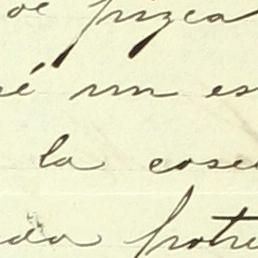 de pizca
é un es
la cose
da potre